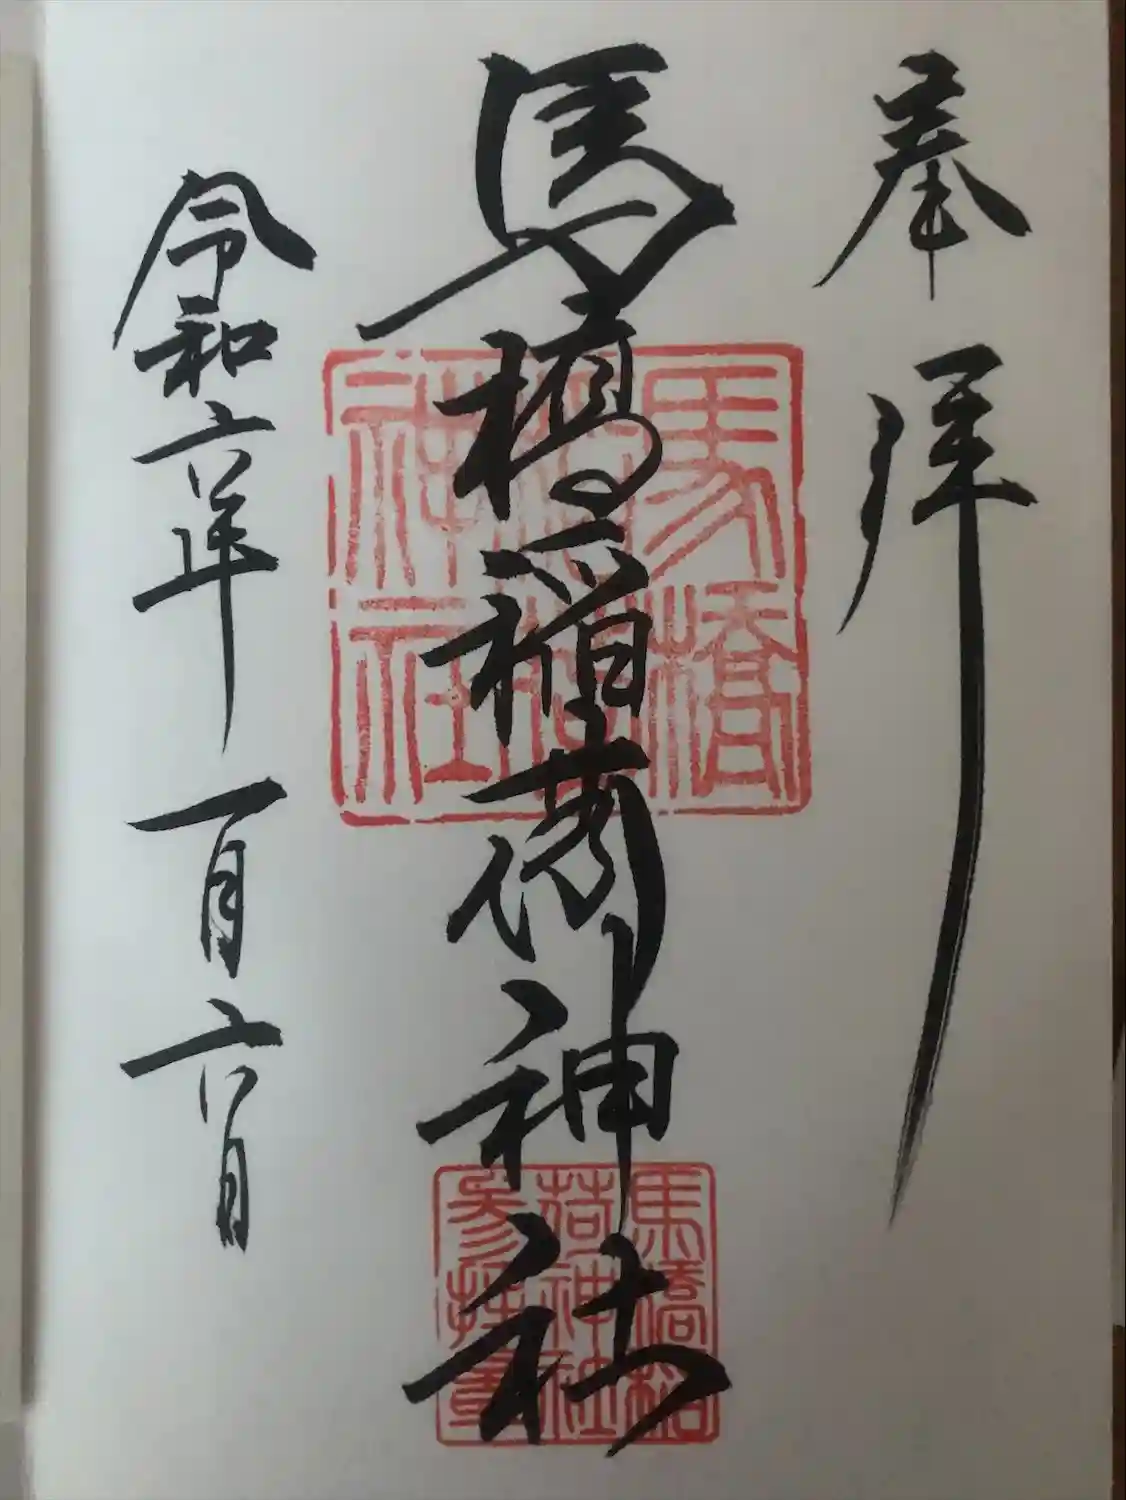 奉拝
馬橋稲荷神社
令和六年 一月六日
馬橋
稲荷
神社
馬橋稲
荷神社
参拝章